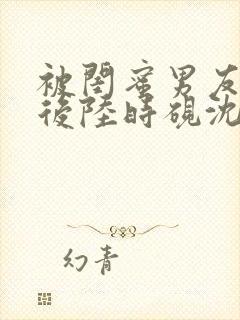 被閏蜜男友
後陸時硯沈
幻青